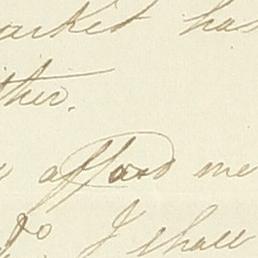 market has
ther.
afford me
to I shall